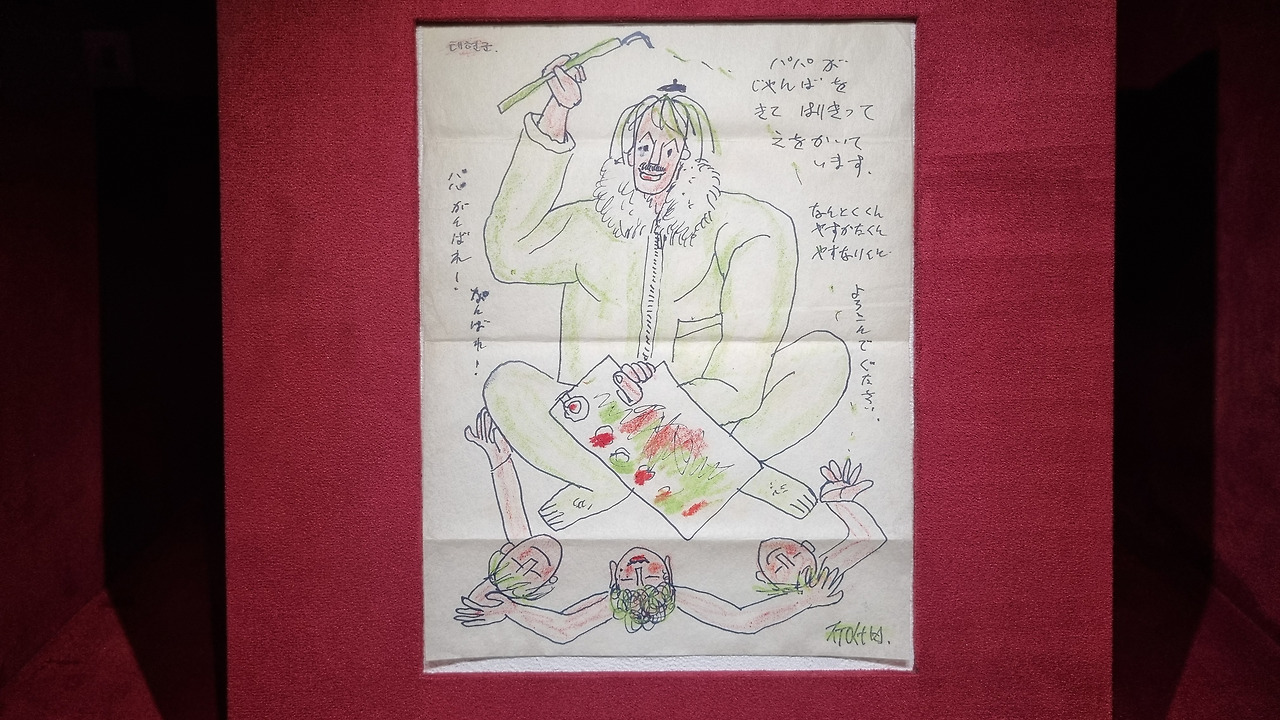 태현군.
パパが
じゃんばを
きて はりきって
えをかいて
います.
パパ がんばれ!
がんばれ!
やすかたくん
やすなりくんと
よろこんでください.
ㅈㅜㅇㅅㅓㅂ.